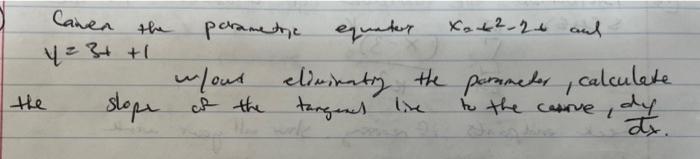 Given the parametric equations x = t² - 2t and
y = 3t + 1
w/out eliminating the parameter, calculate
the slope of the tangent line to the curve, dy/dx.